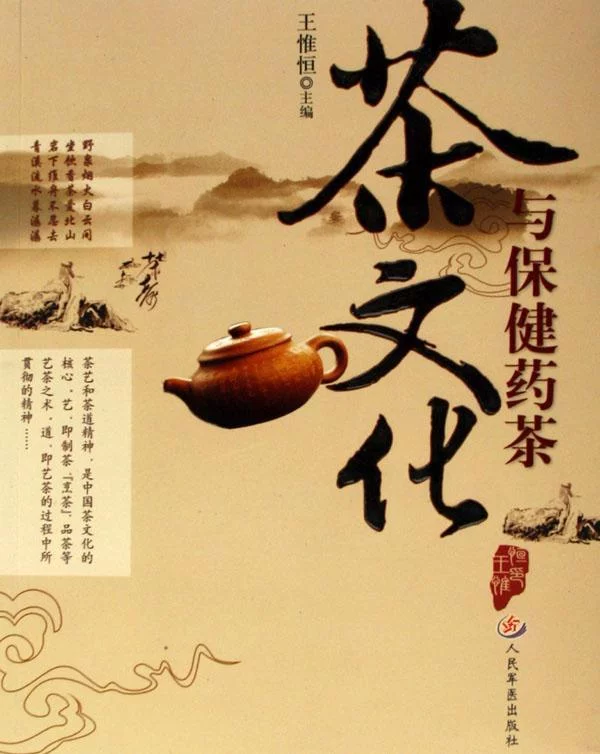 王惟恒◎主编
茶文化
与保健药茶
野泉烟火白云间
坐饮香茶爱北山
岩下维舟不忍去
青溪流水暮潺潺
茶艺和茶道精神，是中国茶文化的
核心。艺，即制茶、烹茶、品茶等
艺茶之术。道，即艺茶的过程中所
贯彻的精神……
王惟恒印
人民军医出版社